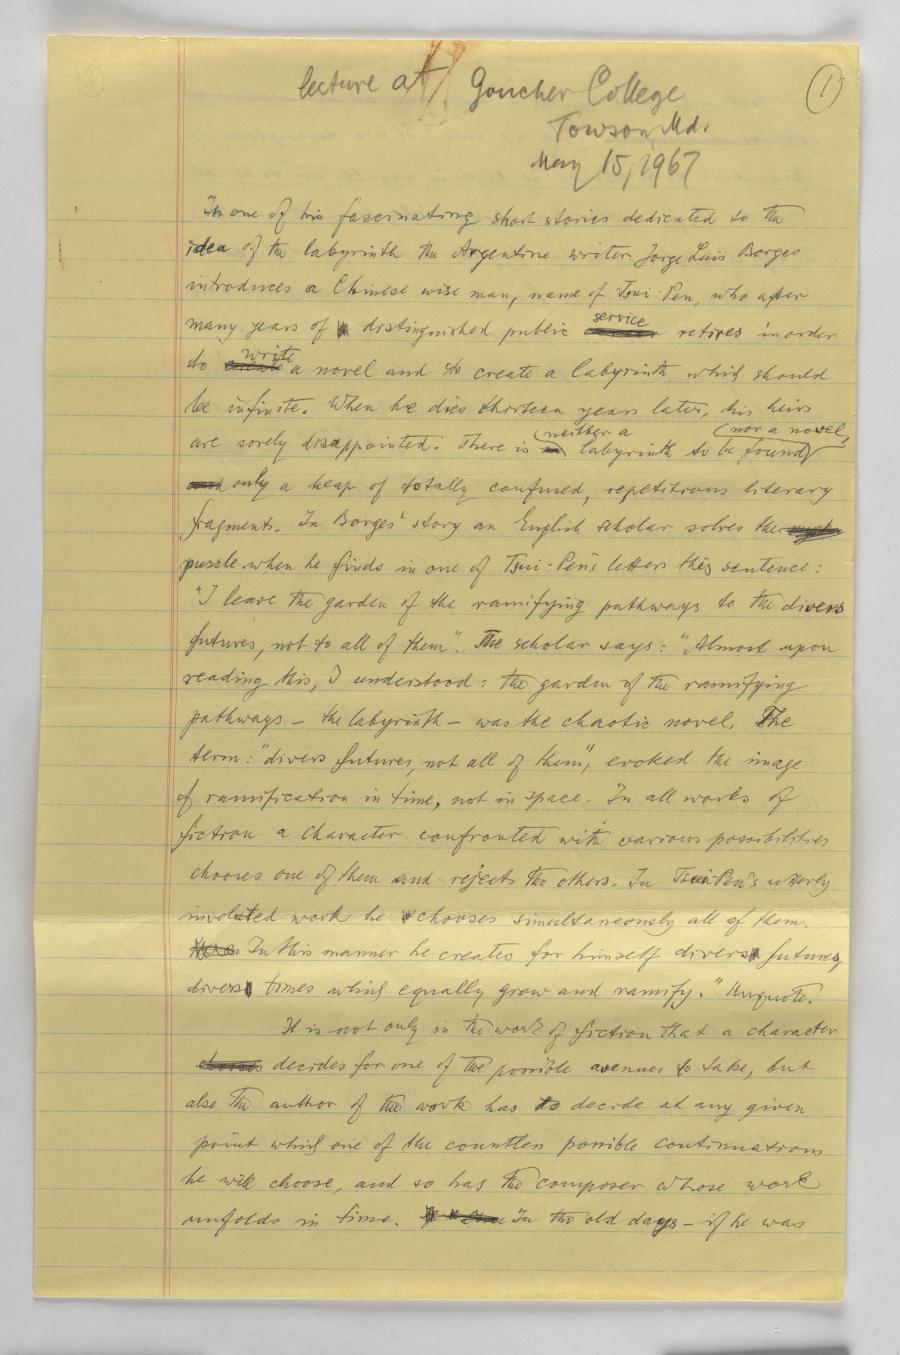 lecture at Goucher College
1
Towson, Md.
May 15, 1967
In one of his fascinating short stories dedicated to the
idea of the labyrinth the Argentine writer Jorge Luis Borges
introduces a Chinese wise man, name of Tsui-Pen, who after
many years of distinguished public service retires in order
to write a novel and to create a labyrinth which should
be infinite. When he dies thirteen years later, his heirs
are sorely disappointed. There is neither a labyrinth to be found nor a novel,
only a heap of totally confused, repetitious literary
fragments. In Borges' story an English scholar solves the
puzzle when he finds in one of Tsui-Pen's letters this sentence:
"I leave the garden of the ramifying pathways to the divers
futures, not to all of them". The scholar says: "Almost upon
reading this, I understood: the garden of the ramifying
pathways – the labyrinth – was the chaotic novel. The
term: "divers futures, not all of them", evoked the image
of ramification in time, not in space. In all works of
fiction a character confronted with various possibilities
chooses one of them and rejects the others. In Tsui Pen's utterly
involuted work he chooses simultaneously all of them.
In this manner he creates for himself divers futures,
divers times which equally grow and ramify." Unquote.
It is not only in the work of fiction that a character
decides for one of the possible avenues to take, but
also the author of the work has to decide at any given
point which one of the countless possible continuations
he will choose, and so has the composer whose work
unfolds in time. In the old days – if he was